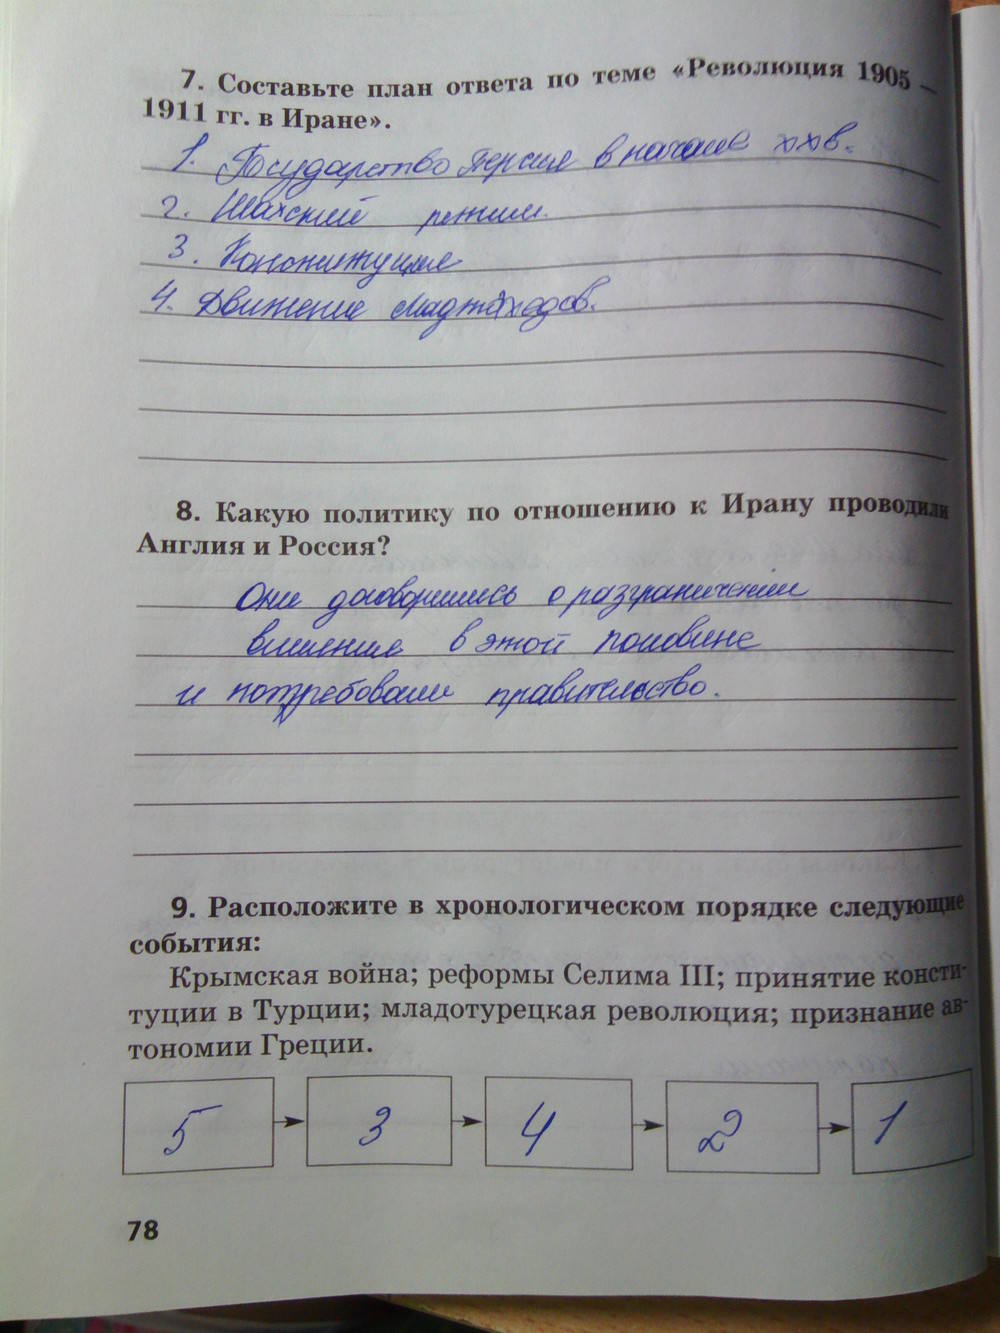 7. Составьте план ответа по теме «Революция 1905 –
1911 гг. в Иране».
1. Государство Персия в начале XXв.
2. Шахский режим.
3. Конституция
4. Движение маджахедов.
8. Какую политику по отношению к Ирану проводили
Англия и Россия?
Они договорились о разграничении
влияние в этой половине
и потребовали правительство.
9. Расположите в хронологическом порядке следующие
события:
Крымская война; реформы Селима III; принятие консти-
туции в Турции; младотурецкая революция; признание ав-
тономии Греции.
5 3 4 2 1
78